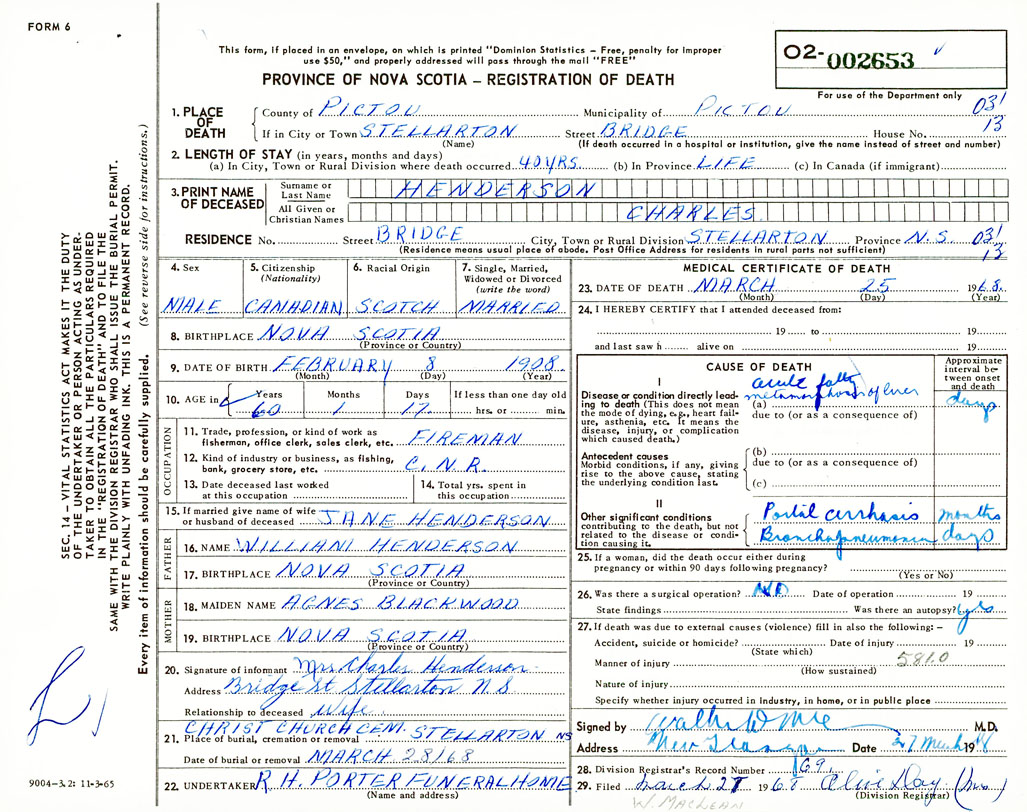 FORM 6
This form, if placed in an envelope, on which is printed "Dominion Statistics – Free, penalty for improper
use $50," and properly addressed will pass through the mail "FREE"
PROVINCE OF NOVA SCOTIA – REGISTRATION OF DEATH
O2-002653
For use of the Department only
031
13
1. PLACE OF DEATH
County of PICTOU Municipality of PICTOU
If in City or Town STELLARTON Street BRIDGE House No.
(Name) (If death occurred in a hospital or institution, give the name instead of street and number)
2. LENGTH OF STAY (in years, months and days)
(a) In City, Town or Rural Division where death occurred 40 YRS (b) In Province LIFE (c) In Canada (if immigrant)
3. PRINT NAME OF DECEASED
Surname or Last Name HENDERSON
All Given or Christian Names CHARLES
RESIDENCE No. Street BRIDGE City, Town or Rural Division STELLARTON Province N.S. 031
13
(Residence means usual place of abode. Post Office Address for residents in rural parts not sufficient)
4. Sex
MALE
5. Citizenship
(Nationality)
CANADIAN
6. Racial Origin
SCOTCH
7. Single, Married,
Widowed or Divorced
(write the word)
MARRIED
8. BIRTHPLACE NOVA SCOTIA
(Province or Country)
9. DATE OF BIRTH FEBRUARY 8 1908
(Month) (Day) (Year)
10. AGE in Years Months Days If less than one day old
60 1 17 hrs. or min.
OCCUPATION
11. Trade, profession, or kind of work as
fisherman, office clerk, sales clerk, etc. FIREMAN
12. Kind of industry or business, as fishing,
bank, grocery store, etc. C.N.R.
13. Date deceased last worked
at this occupation
14. Total yrs. spent in
this occupation
15. If married give name of wife
or husband of deceased JANE HENDERSON
FATHER
16. NAME WILLIAM HENDERSON
17. BIRTHPLACE NOVA SCOTIA
(Province or Country)
MOTHER
18. MAIDEN NAME AGNES BLACKWOOD
19. BIRTHPLACE NOVA SCOTIA
(Province or Country)
20. Signature of informant Mrs Charles Henderson
Address Bridge St Stellarton N.S
Relationship to deceased Wife
CHRIST CHURCH CEM. STELLARTON NS
21. Place of burial, cremation or removal
Date of burial or removal MARCH 28/68
22. UNDERTAKER R.H. PORTER FUNERAL HOME
(Name and address)
MEDICAL CERTIFICATE OF DEATH
23. DATE OF DEATH MARCH 25 1968
(Month) (Day) (Year)
24. I HEREBY CERTIFY that I attended deceased from:
19 to 19
and last saw h alive on 19
CAUSE OF DEATH
Approximate
interval be-
tween onset
and death
I
Disease or condition directly lead-
ing to death (This does not mean
the mode of dying, e.g., heart fail-
ure, asthenia, etc. It means the
disease, injury, or complication
which caused death.)
acute fatty
(a) metamorphosis of liver days
due to (or as a consequence of)
Antecedent causes
Morbid conditions, if any, giving
rise to the above cause, stating
the underlying condition last.
(b)
due to (or as a consequence of)
(c)
II
Other significant conditions
contributing to the death, but not
related to the disease or condi-
tion causing it.
Portal cirrhosis months
Bronchopneumonia days
25. If a woman, did the death occur either during
pregnancy or within 90 days following pregnancy?
(Yes or No)
26. Was there a surgical operation? NO Date of operation 19
State findings Was there an autopsy? yes
27. If death was due to external causes (violence) fill in also the following: –
Accident, suicide or homicide? Date of injury 19
(State which)
Manner of injury 581.0
(How sustained)
Nature of injury
Specify whether injury occurred in industry, in home, or in public place
Signed by M.D.
Address New Date 27 March 1968
28. Division Registrar's Record Number 169
29. Filed March 27 1968
(Division Registrar)
W. MACLEAN
SEC. 14 – VITAL STATISTICS ACT MAKES IT THE DUTY
OF THE UNDERTAKER OR PERSON ACTING AS UNDER-
TAKER TO OBTAIN ALL THE PARTICULARS REQUIRED
IN THE "REGISTRATION OF DEATH" AND TO FILE THE
SAME WITH THE DIVISION REGISTRAR WHO SHALL ISSUE THE BURIAL PERMIT.
WRITE PLAINLY WITH UNFADING INK. THIS IS A PERMANENT RECORD.
Every item of information should be carefully supplied. (See reverse side for instructions.)
9004-3.2: 11-3-65